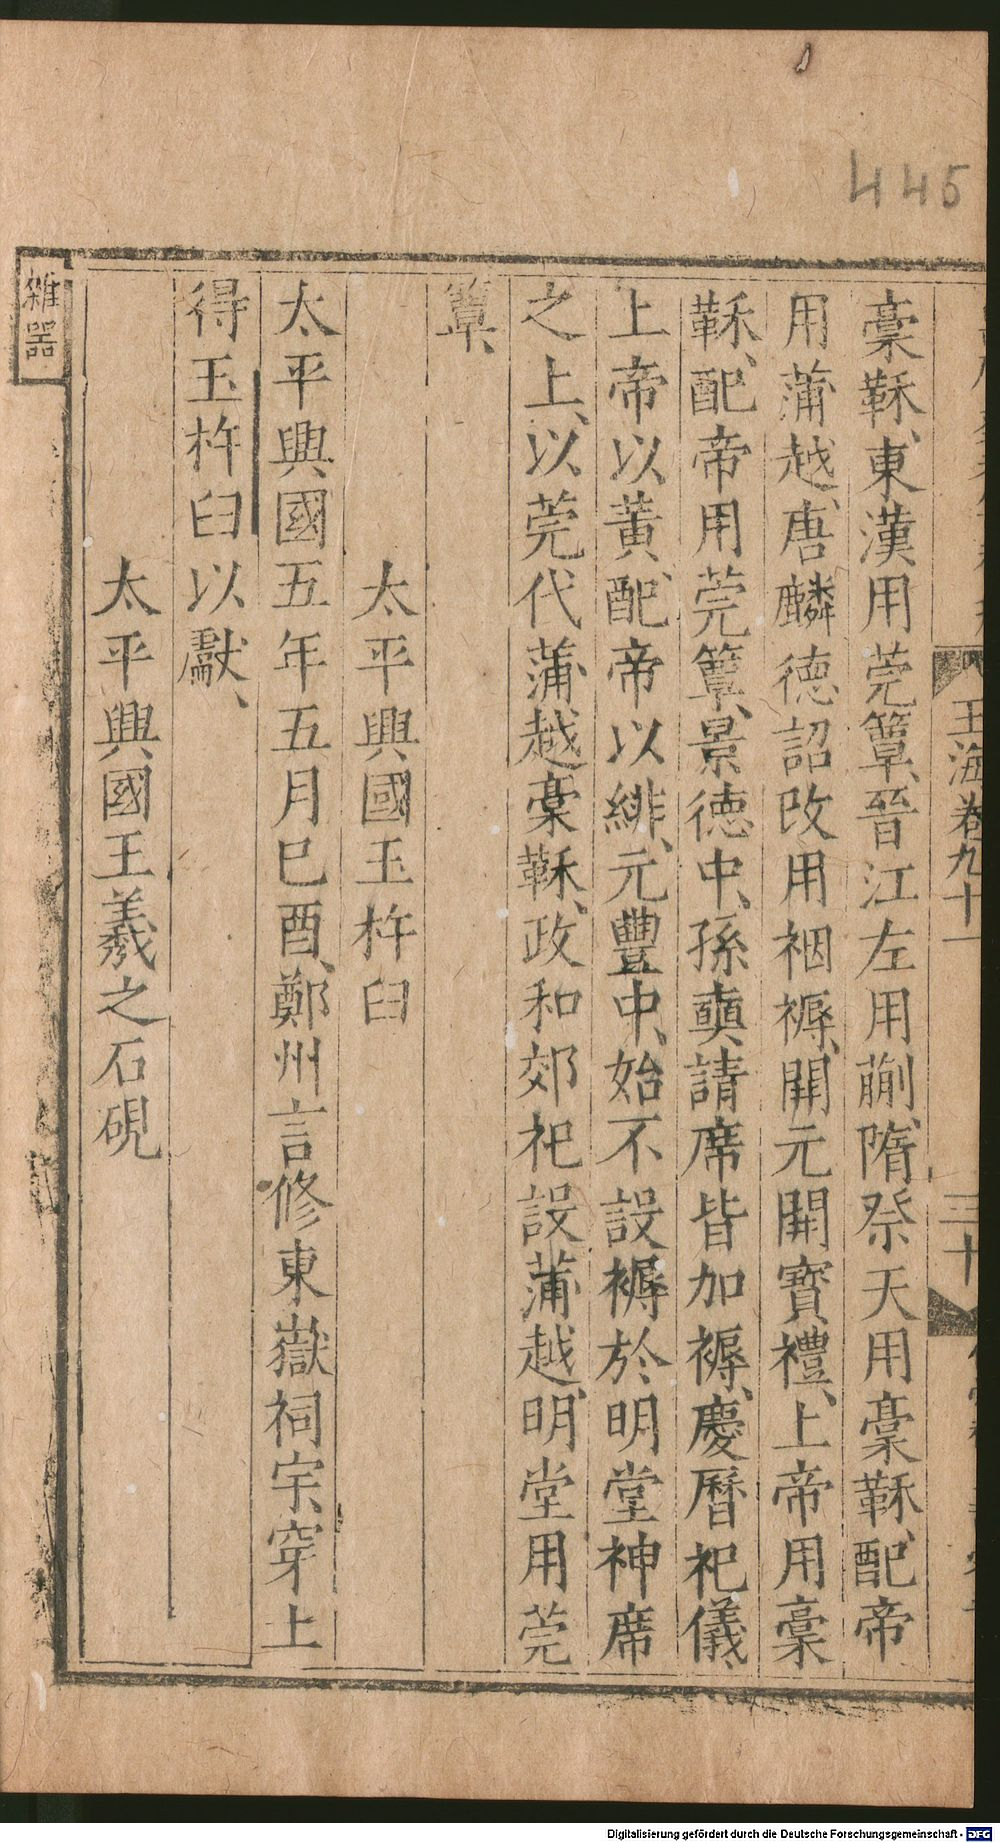 445
玉海卷九十一
三十
槀鞂、東漢用莞簟、晉江左用蒯、隋祭天用槀鞂、配帝
用蒲越、唐麟德詔改用裀褥、開元開寶禮、上帝用槀
鞂、配帝用莞簟、景德中、孫奭請席皆加褥、慶曆祀儀、
上帝以黃、配帝以緋、元豐中、始不設褥於明堂神席
之上、以莞代蒲越槀鞂、政和郊祀設蒲越、明堂用莞
簟、
太平興國玉杵臼
太平興國五年五月巳酉、鄭州言修東嶽祠宇、穿土
得玉杵臼以獻、
太平興國王羲之石硯
雜器
Digitalisierung gefördert durch die Deutsche Forschungsgemeinschaft - DFG